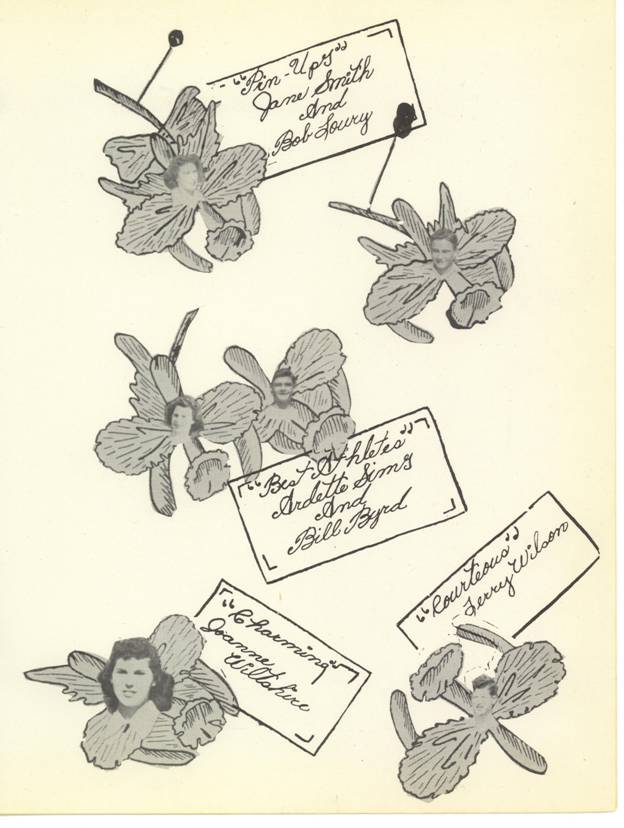 "Pin-Ups"
Jane Smith
And
Bob Loury
"Best Athletes"
Ardette Sims
And
Bill Byrd
"Courteous"
Jerry Wilson
"Charming"
Joanne
Wiltshire